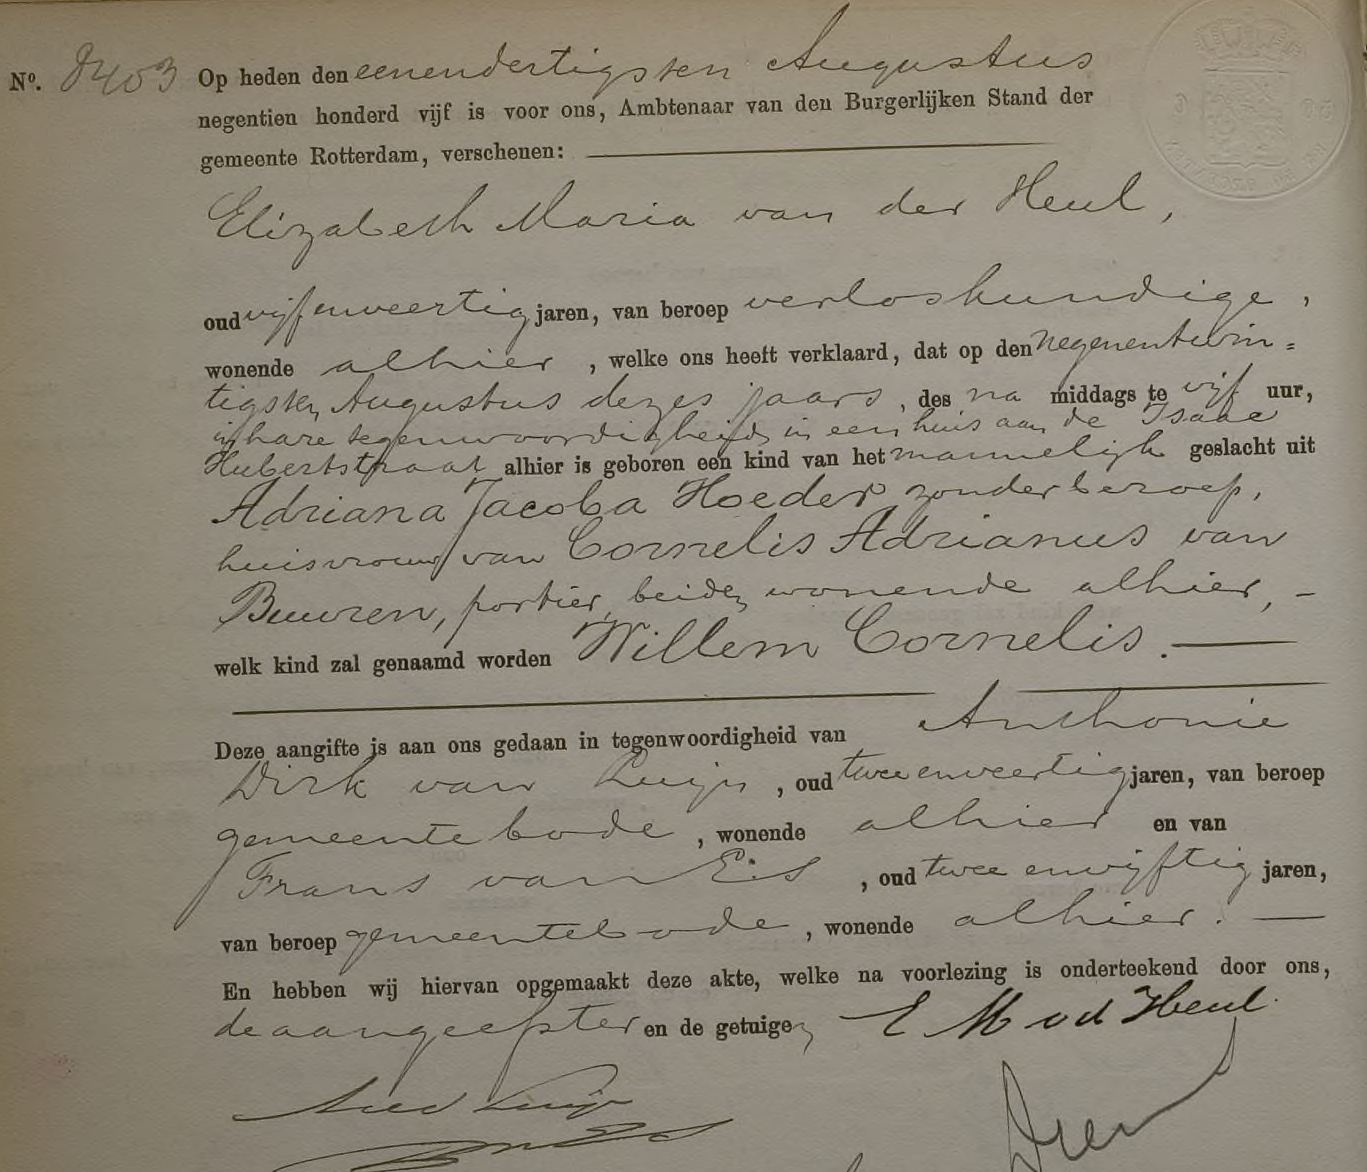 Nº. 8403 Op heden den eenendertigsten Augustus
negentien honderd vijf is voor ons, Ambtenaar van den Burgerlijken Stand der
gemeente Rotterdam, verschenen:
Elizabeth Maria van der Heul,
oud vijfenveertig jaren, van beroep verloskundige,
wonende alhier, welke ons heeft verklaard, dat op den negenentwin=
tigsten Augustus dezes jaars, des na middags te vijf uur,
in hare tegenwoordigheid, in een huis aan de Isaac
Hubertstraat alhier is geboren een kind van het mannelijk geslacht uit
Adriana Jacoba Hoeder zonder beroep,
huisvrouw van Cornelis Adrianus van
Buuren, portier, beiden wonende alhier, -
welk kind zal genaamd worden Willem Cornelis.
Deze aangifte is aan ons gedaan in tegenwoordigheid van Anthonie
Dirk van Luijn, oud tweeenveertig jaren, van beroep
gemeentebode, wonende alhier en van
Frans van Es, oud tweeenvijftig jaren,
van beroep gemeentebode, wonende alhier.
En hebben wij hiervan opgemaakt deze akte, welke na voorlezing is onderteekend door ons,
de aangeefster en de getuigen E M v d Heul.